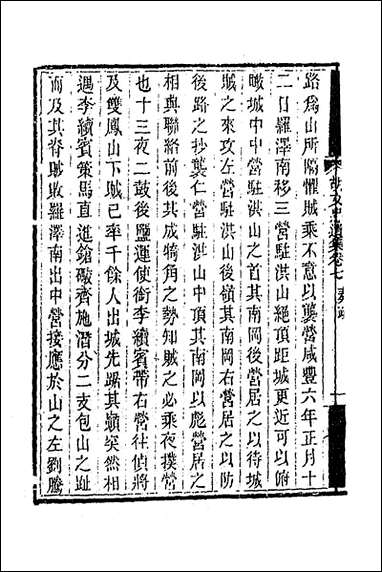 路爲山所隔懼賊乘不意以襲營咸豐六年正月十
二日羅澤南移三營駐洪山絕頂距城更近可以俯
瞰城中中營駐洪山之首其南岡後營居之以待城
賊之來攻左營駐洪山後嶺其南岡右營居之以防
後路之抄襲仁營駐洪山中頂其南岡以彪營居之
相與聯絡前後其成犄角之勢知賊之必乘夜撲營
也十三夜二鼓後鹽運使銜李續賓帶右營往偵將
及雙鳳山下賊已率千餘人出城先踞其巔突然相
遇李續賓策馬直進鎗礮齊施潛分二支包山之趾
而及其脊賊敗羅澤南出中營接應於山之左劉騰
胡文忠遺集卷七 奏疏